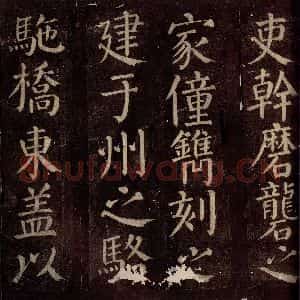 吏幹磨礱之
家僮鐫刻之
建于州之駱
駞橋東盖以
Shufawang.Cn